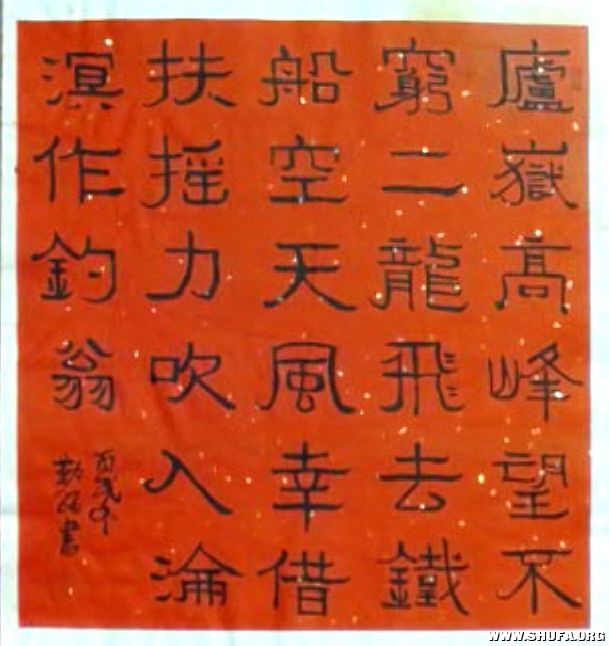 廬嶽高峰望不
窮二龍飛去鐵
船空天風幸借
扶摇力吹入淪
溟作釣翁
書
WWW.SHUFA.ORG